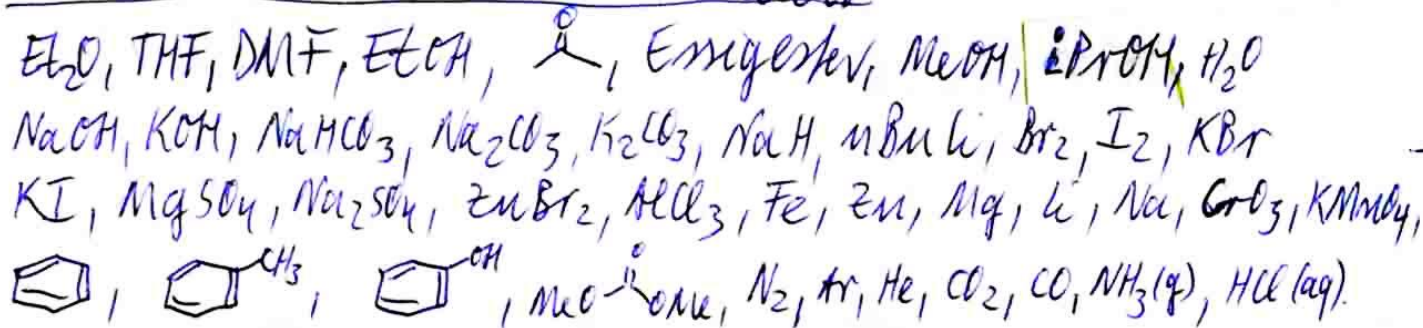 Et₂O, THF, DMF, EtOH, O, Essigester, MeOH, iPrOH, H₂O
NaOH, KOH, NaHCO₃, Na₂CO₃, K₂CO₃, NaH, nBuLi, Br₂, I₂, KBr
KI, MgSO₄, Na₂SO₄, ZnBr₂, AlCl₃, Fe, Zn, Mg, Li, Na, CrO₃, KMnO₄,
, CH₃, OH, MeO O OMe, N₂, Ar, He, CO₂, CO, NH₃(g), HCl (aq).